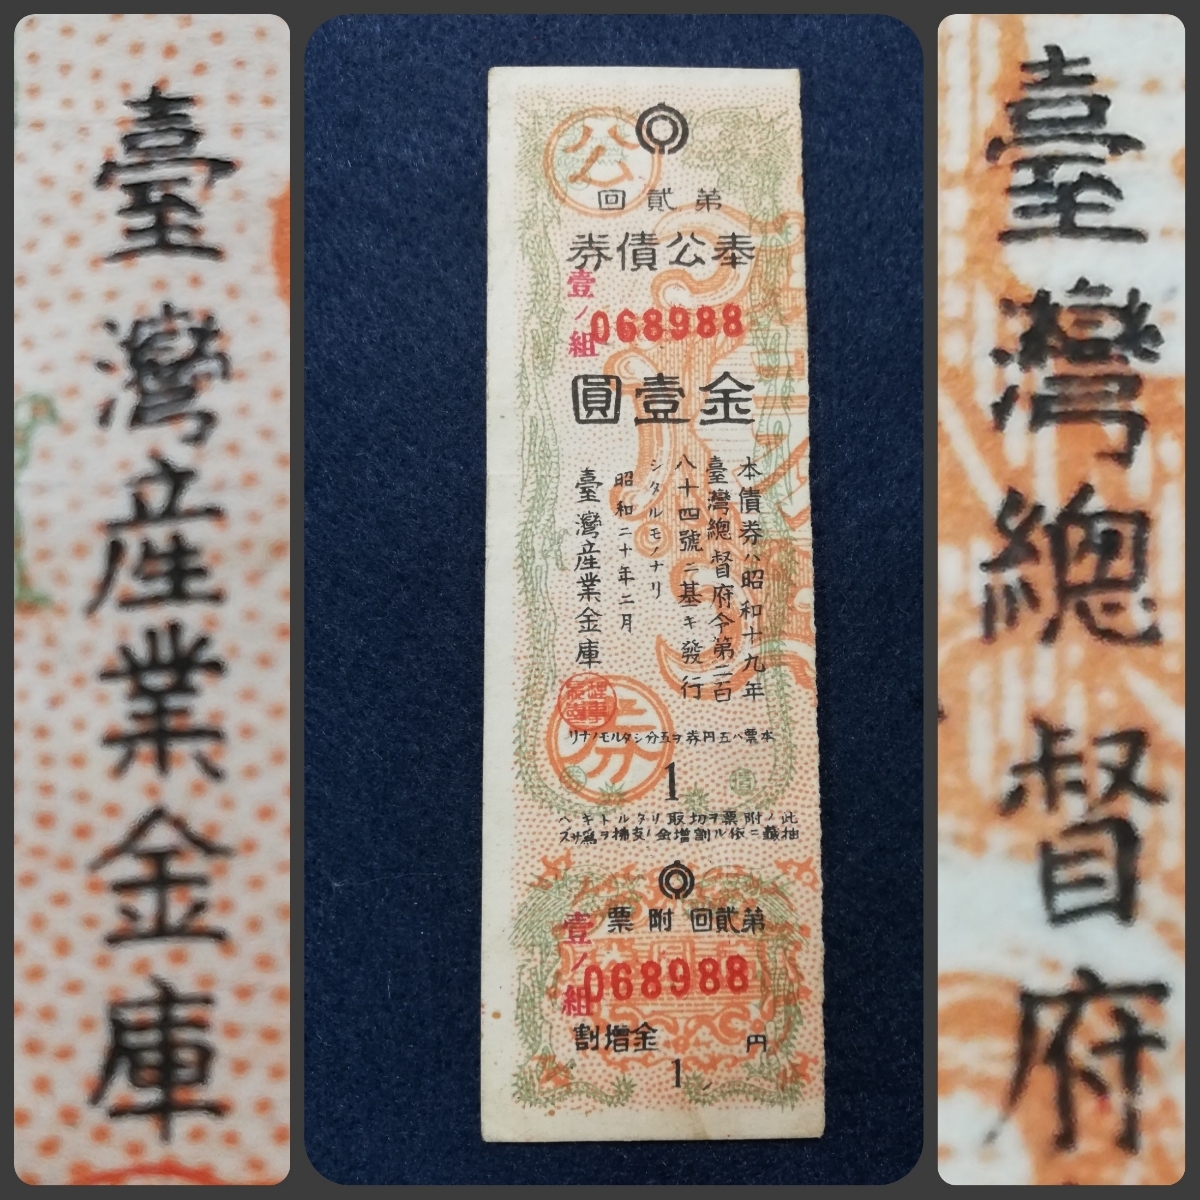 臺灣産業金庫
公
第貳回
奉公債券
壹ノ組
068988
金壹圓
本債券ハ昭和十九年
臺灣總督府令第二百
八十四號ニ基キ發行
シタルモノナリ
昭和二十年二月
臺灣産業金庫
券
本票ハ五円券ヲ五分シタルモノナリ
1
此ノ附票ヲ切取リタルトキハ
抽籤ニ依ル割增金ノ支拂ヲ爲サス
第貳回附票
壹ノ組
068988
割增金
円
1
臺灣總督府